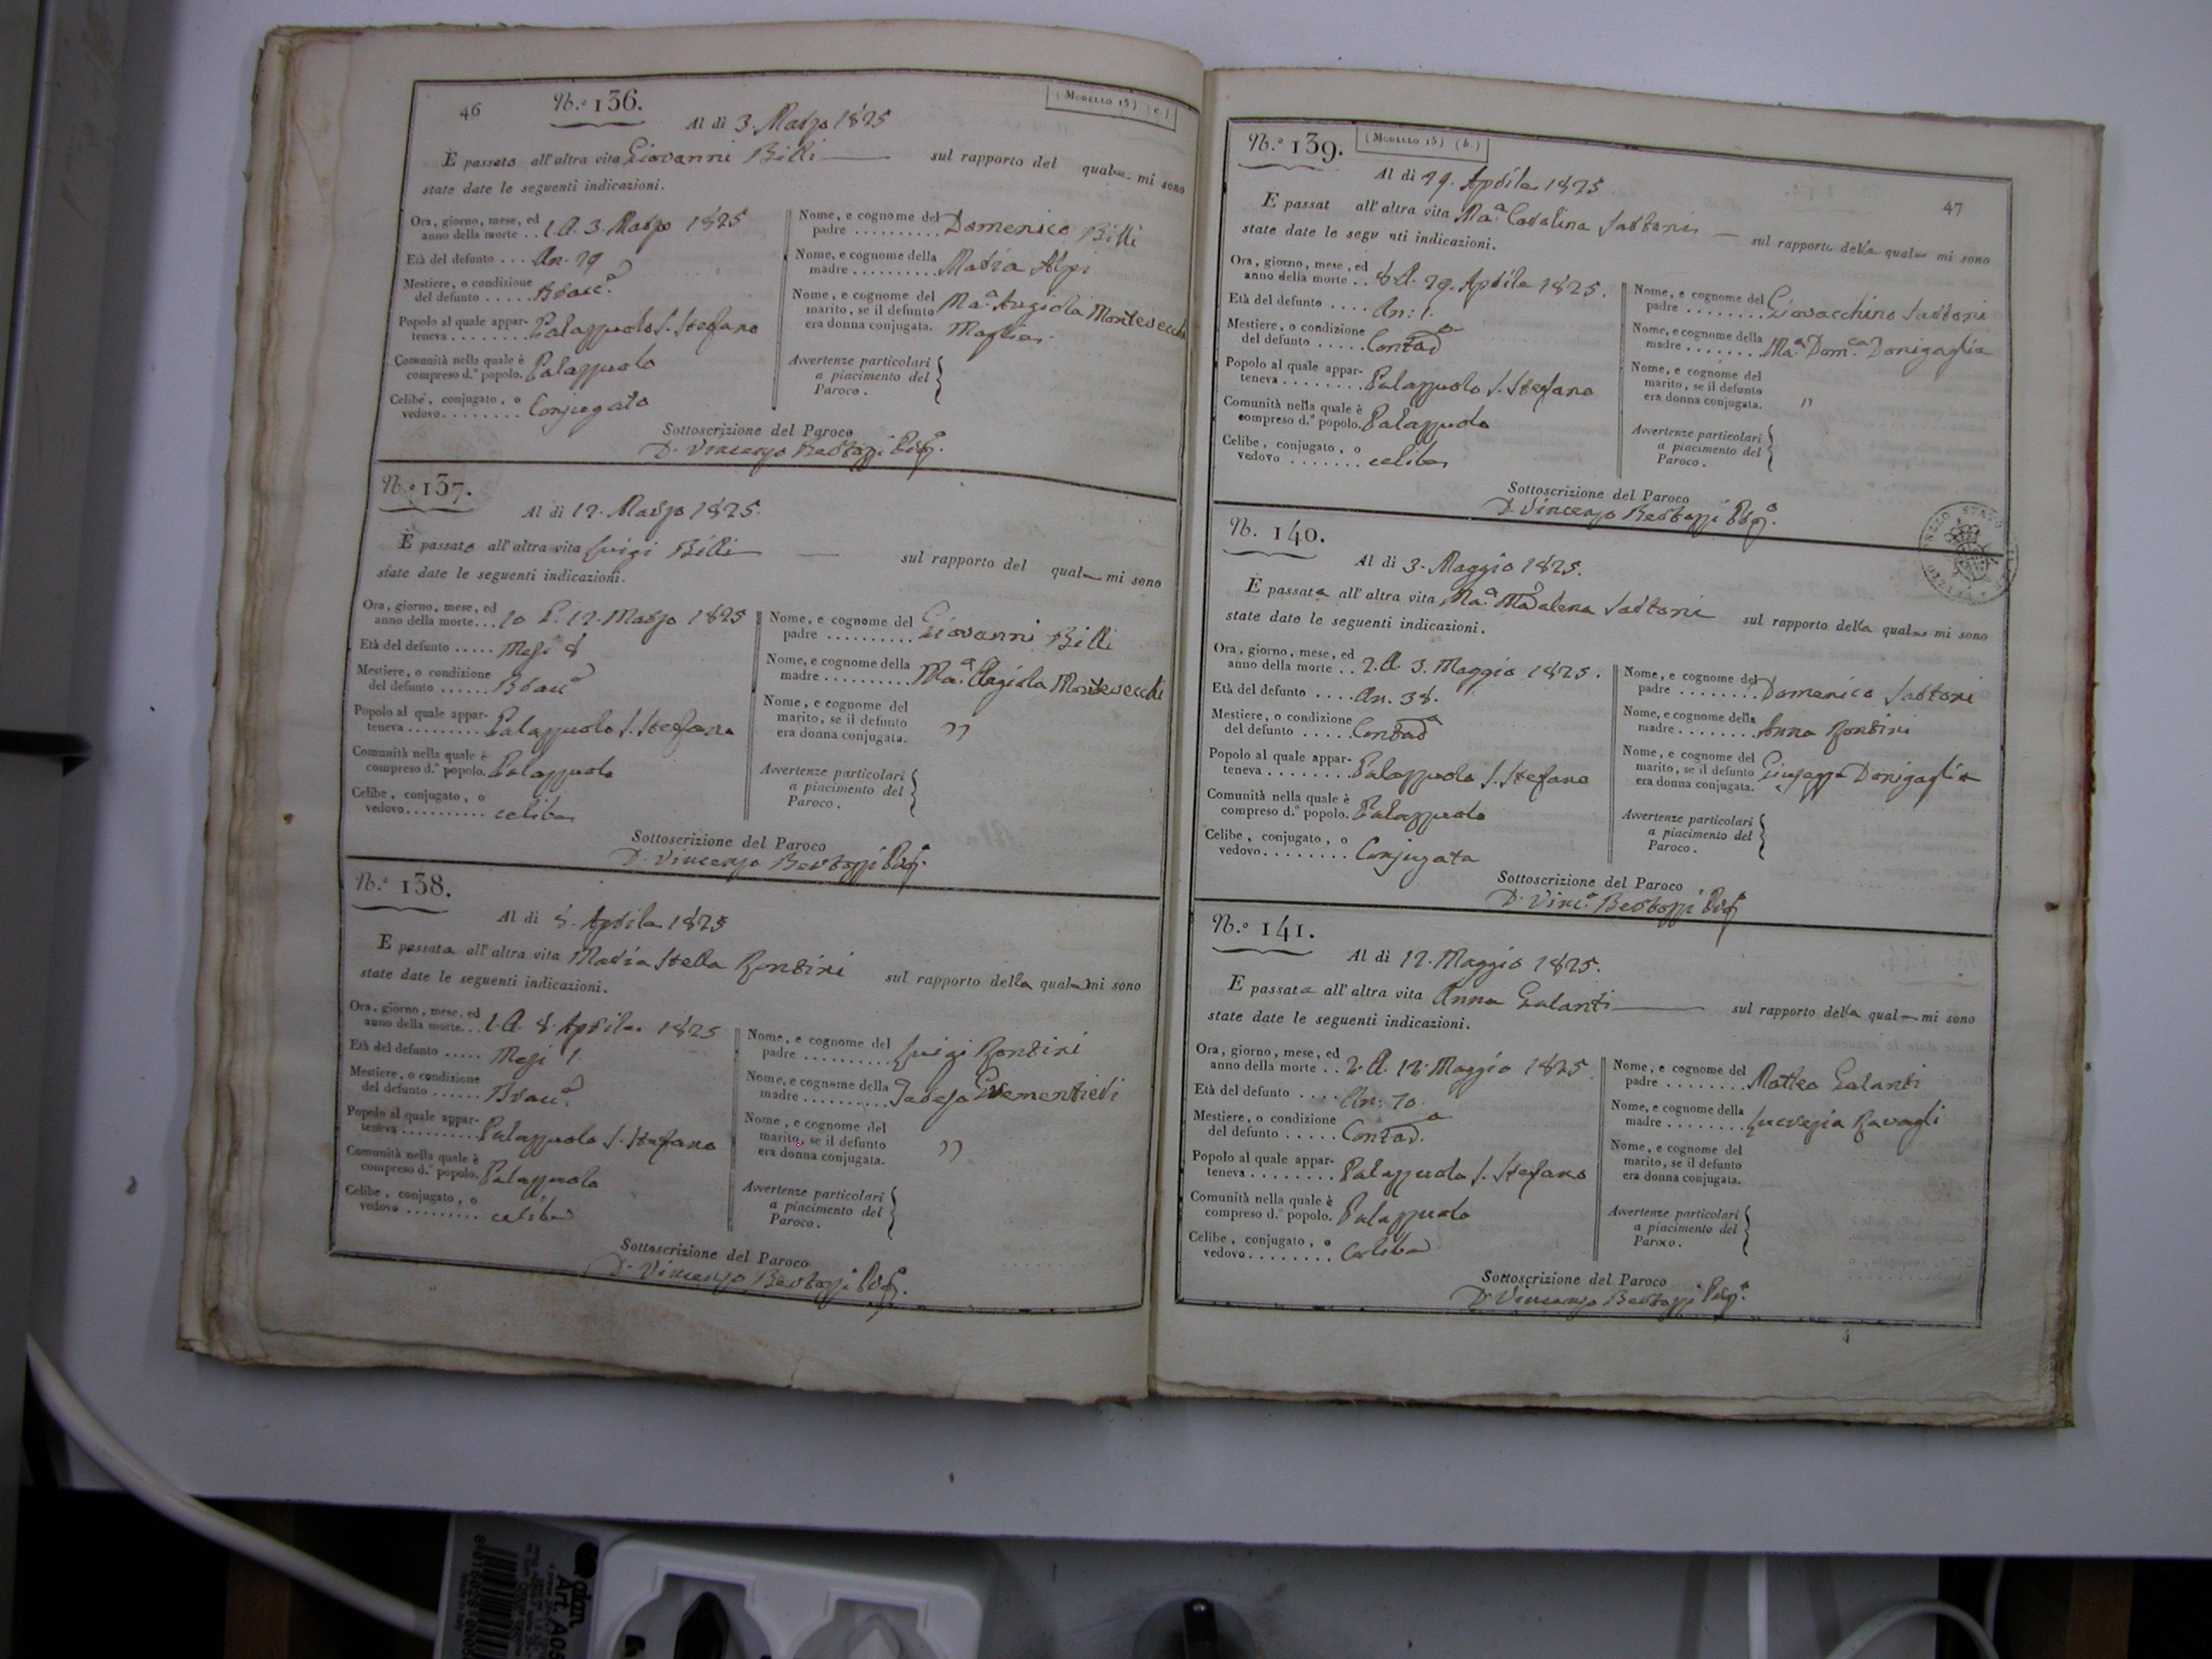 46
N.º 136.
(Modello 15) (c.)
Al dì 3. Marzo 1825
È passato all'altra vita Giovanni Billi — sul rapporto del qual mi sono
state date le seguenti indicazioni.
Ora, giorno, mese, ed
anno della morte . . 1. A. 3. Marzo 1825
Età del defunto . . . An. 29
Mestiere, o condizione
del defunto . . . . . Bracc.e
Popolo al quale appar-
teneva . . . . . . . . Palazzuolo S. Stefano
Comunità nella quale è
compreso d.º popolo. Palazzuolo
Celibe, conjugato, o
vedovo . . . . . . . . Conjugato
Nome, e cognome del
padre . . . . . . . . . . Domenico Billi
Nome, e cognome della
madre . . . . . . . . . . Maria Alpi
Nome, e cognome del
marito, se il defunto
era donna conjugata. Ma.a Angiola Montevecchi
Moglie.
Avvertenze particolari
a piacimento del
Paroco.
Sottoscrizione del Paroco
D. Vincenzo Bertozzi
N.º 137.
Al dì 12. Marzo 1825.
È passato all'altra vita Luigi Billi — sul rapporto del qual mi sono
state date le seguenti indicazioni.
Ora, giorno, mese, ed
anno della morte . . . 10 12. Marzo 1825
Età del defunto . . . . . Mesi 8
Mestiere, o condizione
del defunto . . . . . . Bracc.e
Popolo al quale appar-
teneva . . . . . . . . . Palazzuolo S. Stefano
Comunità nella quale è
compreso d.º popolo. Palazzuolo
Celibe, conjugato, o
vedovo . . . . . . . . . . celibe
Nome, e cognome del
padre . . . . . . . . . . Giovanni Billi
Nome, e cognome della
madre . . . . . . . . . . Ma.a Angiola Montevecchi
Nome, e cognome del
marito, se il defunto
era donna conjugata. "
Avvertenze particolari
a piacimento del
Paroco.
Sottoscrizione del Paroco
D. Vincenzo Bertozzi
N.º 138.
Al dì 8. Aprile 1825
È passata all'altra vita Maria Stella Rontini sul rapporto della qual mi sono
state date le seguenti indicazioni.
Ora, giorno, mese, ed
anno della morte . . . 1. A. 8. Aprile 1825
Età del defunto . . . . . Mesi 1.
Mestiere, o condizione
del defunto . . . . . . Bracc.e
Popolo al quale appar-
teneva . . . . . . . . . Palazzuolo S. Stefano
Comunità nella quale è
compreso d.º popolo. Palazzuolo
Celibe, conjugato, o
vedovo . . . . . . . . . celibe
Nome, e cognome del
padre . . . . . . . . . . Luigi Rontini
Nome, e cognome della
madre . . . . . . . . . . Teresa
Nome, e cognome del
marito, se il defunto
era donna conjugata. "
Avvertenze particolari
a piacimento del
Paroco.
Sottoscrizione del Paroco
D. Vincenzo Bertozzi
N.º 139.
(Modello 15) (b.)
47
Al dì 29. Aprile 1825
È passat all'altra vita Ma.a Catalina Sartoni — sul rapporto della qual mi sono
state date le segu nti indicazioni.
Ora, giorno, mese, ed
anno della morte . . 8 A. 29. Aprile 1825.
Età del defunto . . . . An: 1.
Mestiere, o condizione
del defunto . . . . . Contad.a
Popolo al quale appar-
teneva . . . . . . . . Palazzuolo S. Stefano
Comunità nella quale è
compreso d.º popolo. Palazzuolo
Celibe, conjugato, o
vedovo . . . . . . . celibe
Nome, e cognome del
padre . . . . . . . . Giovacchino Sartoni
Nome, e cognome della
madre . . . . . . . Ma.a Dom.ca Donigaglia
Nome, e cognome del
marito, se il defunto
era donna conjugata. "
Avvertenze particolari
a piacimento del
Paroco.
Sottoscrizione del Paroco
D. Vincenzo Bertozzi
N. 140.
Al dì 3. Maggio 1825.
È passata all'altra vita Ma.a Madalena Sartoni sul rapporto della qual mi sono
state date le seguenti indicazioni.
Ora, giorno, mese, ed
anno della morte . . 2. A. 3. Maggio 1825.
Età del defunto . . . . An. 38.
Mestiere, o condizione
del defunto . . . . . Contad.a
Popolo al quale appar-
teneva . . . . . . . . . Palazzuolo S. Stefano
Comunità nella quale è
compreso d.º popolo. Palazzuolo
Celibe, conjugato, o
vedovo . . . . . . . . Conjugata
Nome, e cognome del
padre . . . . . . . . Domenico Sartoni
Nome, e cognome della
madre . . . . . . . . Anna Rontini
Nome, e cognome del
marito, se il defunto
era donna conjugata. Giuseppe Donigaglia
Avvertenze particolari
a piacimento del
Paroco.
Sottoscrizione del Paroco
D. Vinc.o Bertozzi
N.º 141.
Al dì 12. Maggio 1825.
È passata all'altra vita Anna Galanti — sul rapporto della qual mi sono
state date le seguenti indicazioni.
Ora, giorno, mese, ed
anno della morte . . 2. A. 12. Maggio 1825
Età del defunto . . . . An: 70
Mestiere, o condizione
del defunto . . . . . Contad.a
Popolo al quale appar-
teneva . . . . . . . . Palazzuolo S. Stefano
Comunità nella quale è
compreso d.º popolo. Palazzuolo
Celibe, conjugato, o
vedovo . . . . . . . . Celibe
Nome, e cognome del
padre . . . . . . . . Matteo Galanti
Nome, e cognome della
madre . . . . . . . . Lucrezia Ravagli
Nome, e cognome del
marito, se il defunto
era donna conjugata.
Avvertenze particolari
a piacimento del
Paroco.
Sottoscrizione del Paroco
D. Vincenzo Bertozzi